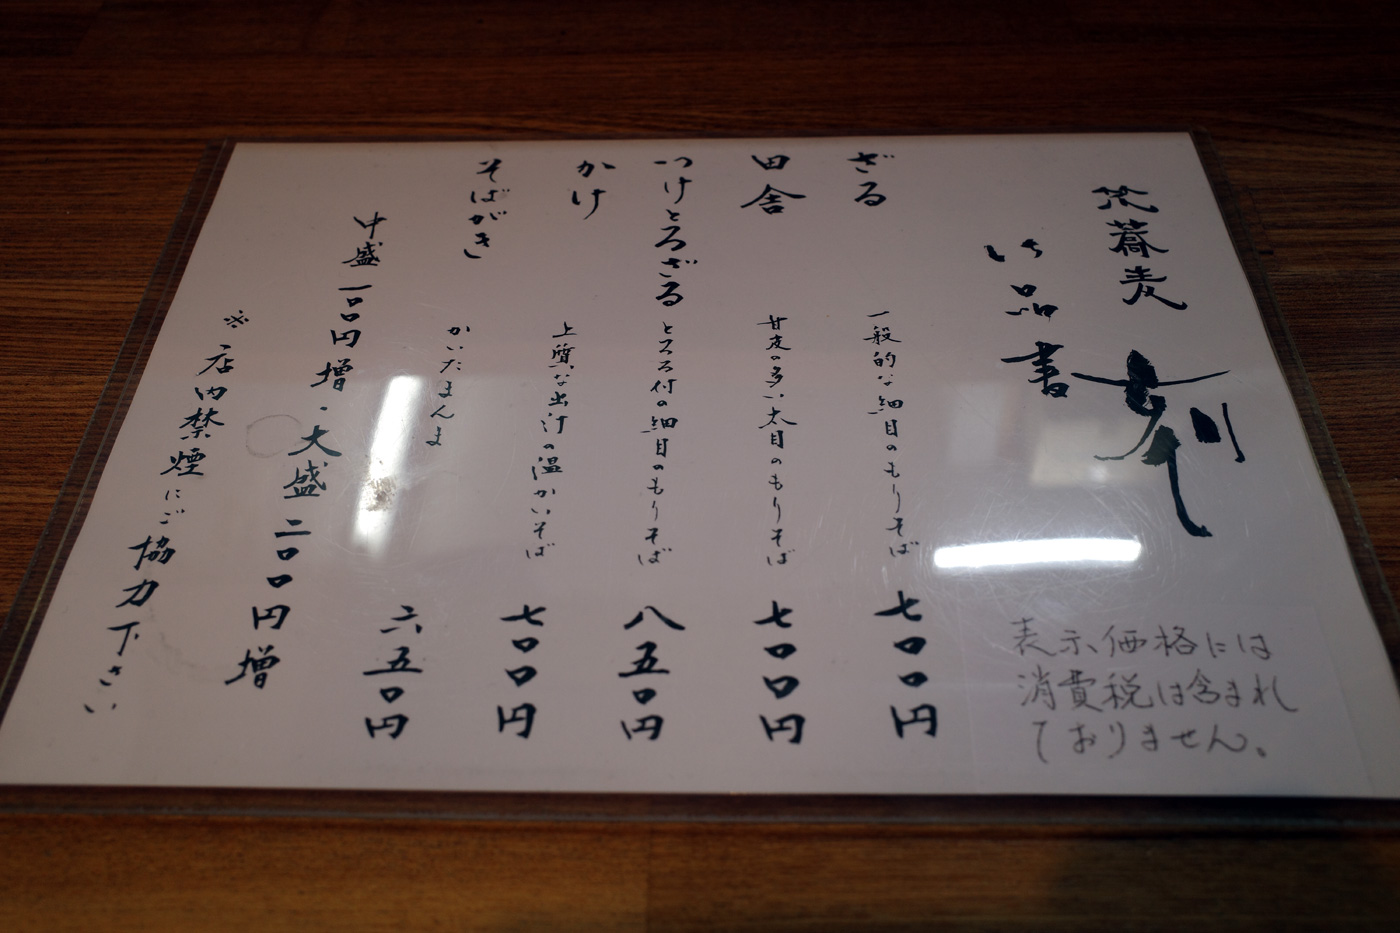 蕎麦
御品書
表示価格には
消費税は含まれ
ておりません。
ざる 一般的な細目のもりそば 七〇〇円
田舎 甘皮の多い太目のもりそば 七〇〇円
つけとろざる とろろ付の細目のもりそば 八五〇円
かけ 上質な出汁の温かいそば 七〇〇円
そばがき かいたまんま 六五〇円
中盛一〇〇円増・大盛二〇〇円増
※店内禁煙にご協力下さい